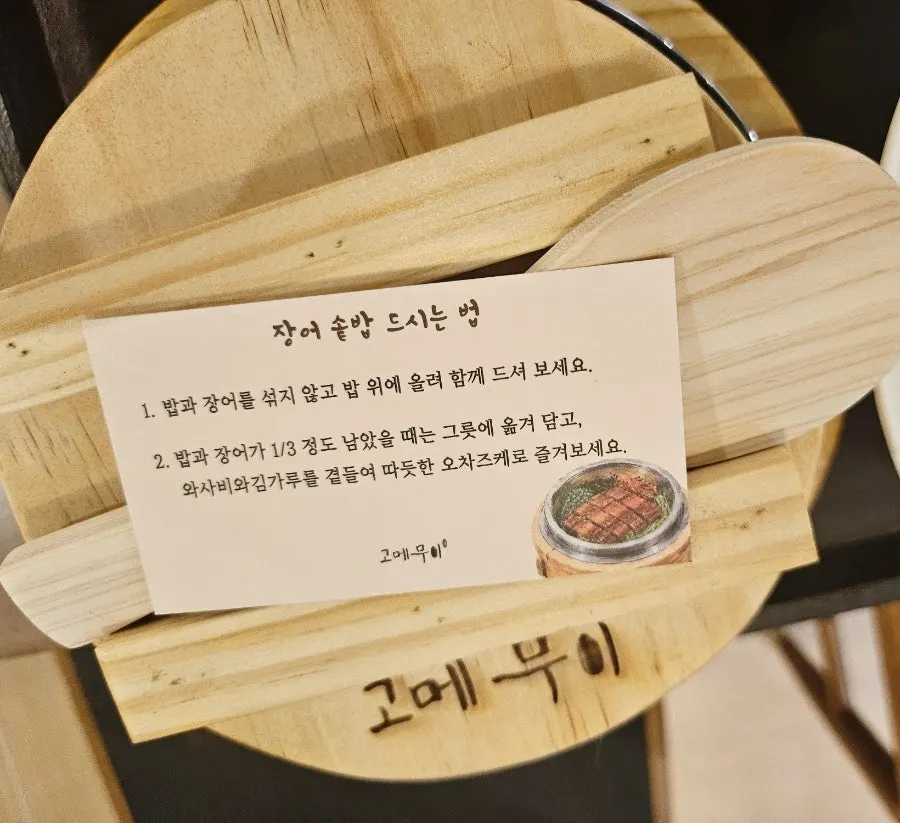 장어 솥밥 드시는 법
1. 밥과 장어를 섞지 않고 밥 위에 올려 함께 드셔 보세요.
2. 밥과 장어가 1/3 정도 남았을 때는 그릇에 옮겨 담고,
와사비와김가루를 곁들여 따듯한 오차즈케로 즐겨보세요.
고메무이
고메무이